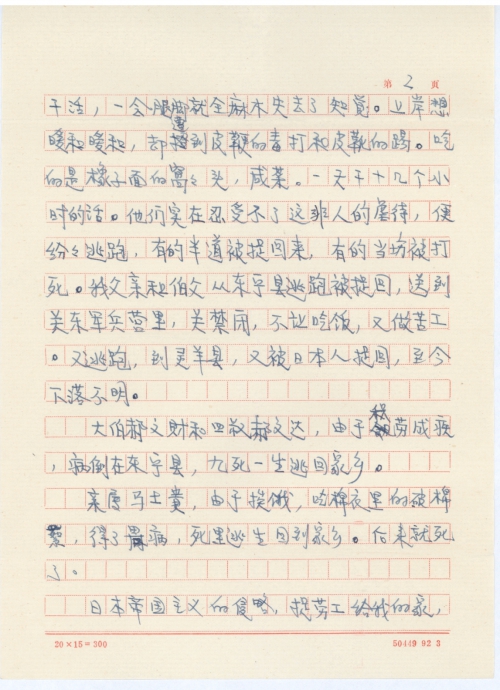 第 2 页
干活，一会腿脚就全麻木失去了知觉。上岸想
暖和暖和，却遭到皮鞭的毒打和皮靴的踢。吃
的是橡子面的窝々头，咸菜。一天干十几个小
时的活。他们实在忍受不了这非人的虐待，便
纷々逃跑，有的半道被捉回来，有的当场被打
死。我父亲和伯父从东宁县逃跑被捉回，送到
关东军兵营里，关禁闭，不让吃饭，又做苦工
。又逃跑，到灵羊县，又被日本人捉回，至今
下落不明。
大伯郝文财和四叔郝文达，由于积劳成疾
，病倒在东宁县，九死一生逃回家乡。
亲属马士贵，由于挨饿，吃棉衣里的破棉
絮，得了胃病，死里逃生回到家乡。后来就死
了。
日本帝国主义的侵略，捉劳工给我的家，
20×15=300
50449 92 3